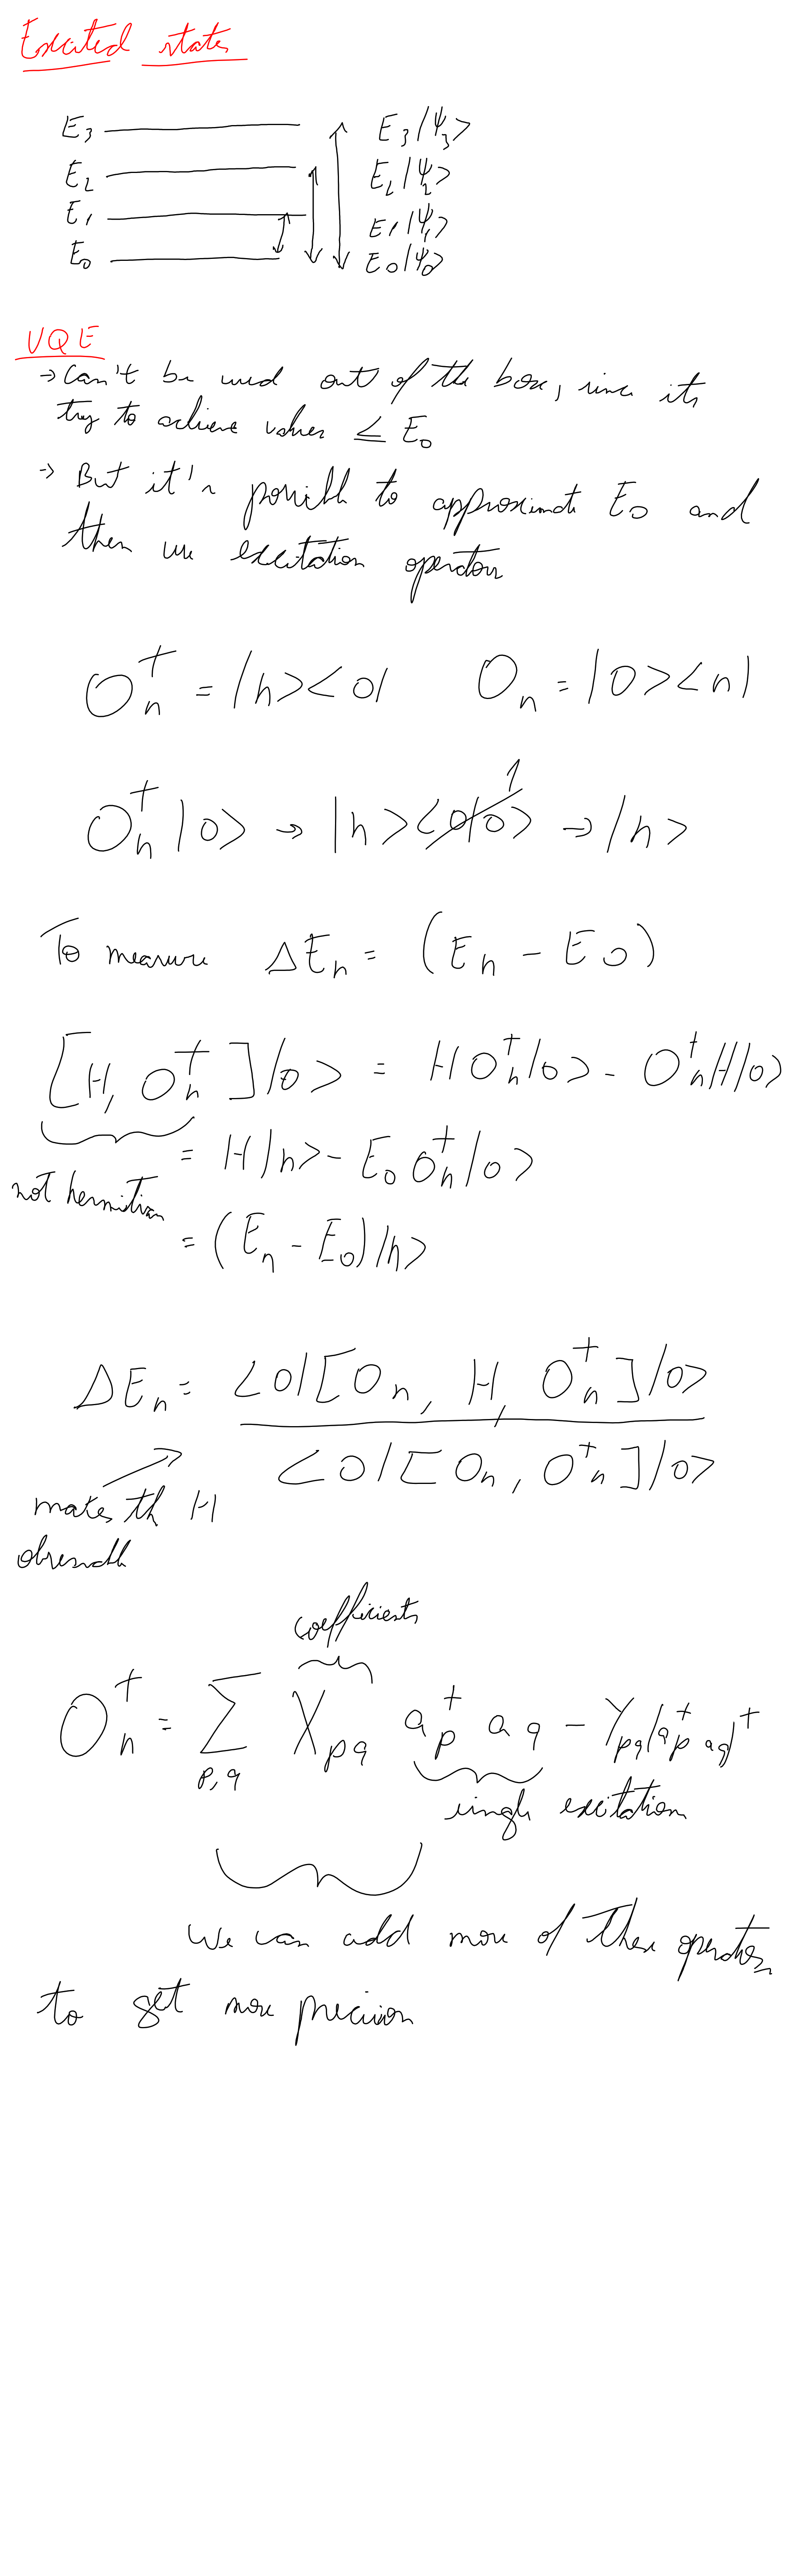 Excited states
E₃ E₃|Ψ₃>
E₂ E₂|Ψ₂>
E₁ E₁|Ψ₁>
E₀ E₀|Ψ₀>
VQE
→ Can't be used out of the box, since its
try to achieve values ≤ E₀
→ But it's possible to approximate E₀ and
then use excitation operators
Oₙ† = |n><0| Oₙ = |0><n|
1
Oₙ†|0> → |n><0|0> → |n>
To measure ΔEₙ = (Eₙ - E₀)
[H, Oₙ†]|0> = H Oₙ†|0> - Oₙ†H|0>
= H|n> - E₀ Oₙ†|0>
not hermitian
= (Eₙ - E₀)|n>
ΔEₙ = <0|[Oₙ, H, Oₙ†]|0>
<0|[Oₙ, Oₙ†]|0>
makes th H
observable
coefficients
Oₙ† = Σ X_pq a_p† a_q - Y_pq(a_p† a_q)†
p,q
single excitation
We can add more of these operators
to get more precision